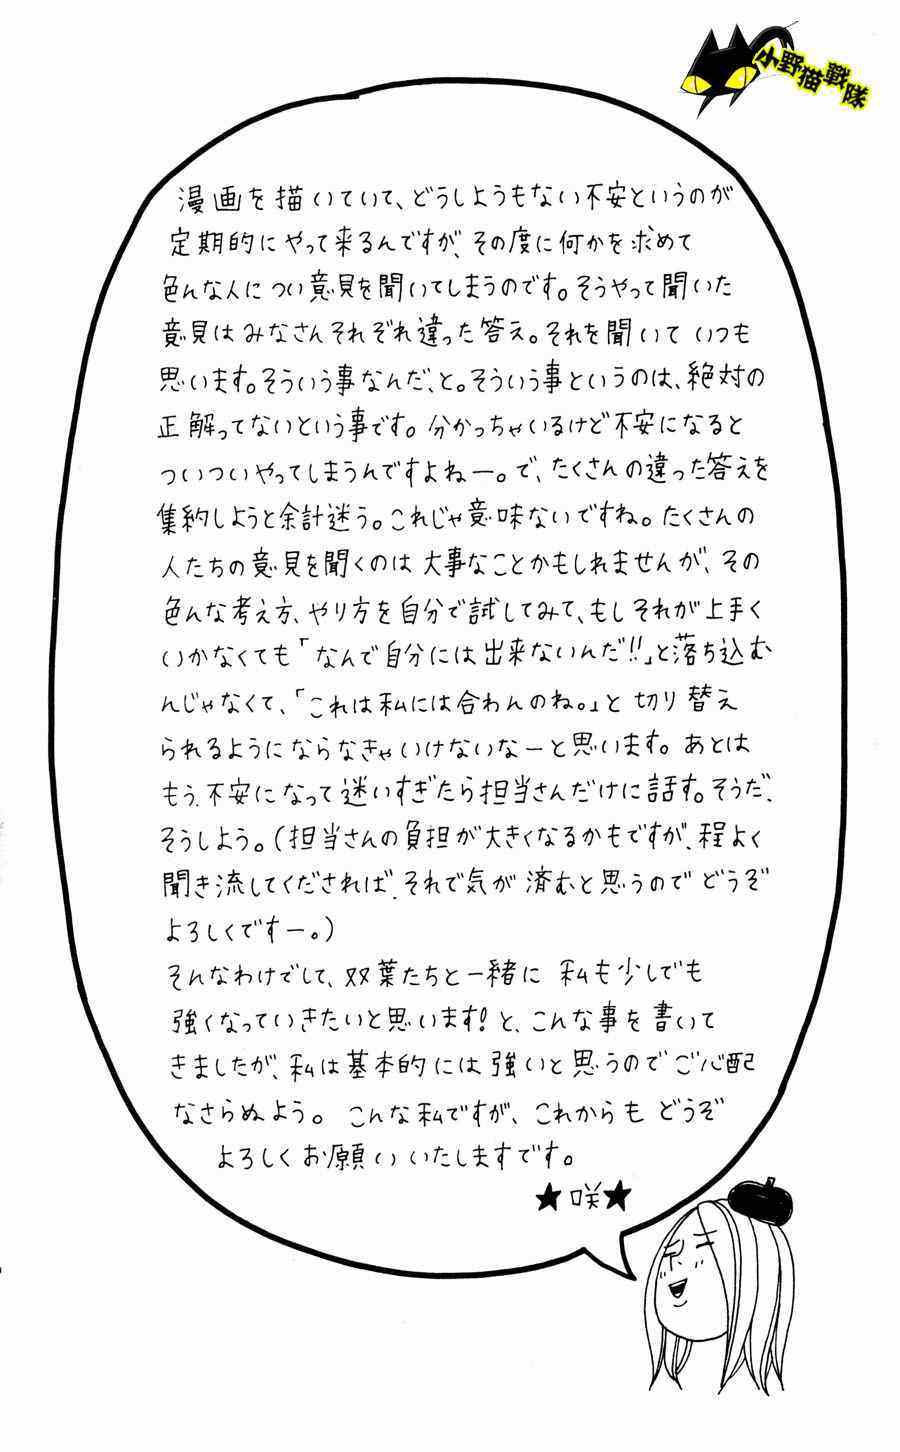 小野猫戰隊
漫画を描いていて、どうしようもない不安というのが
定期的にやって来るんですが、その度に何かを求めて
色んな人につい意見を聞いてしまうのです。そうやって聞いた
意見はみなさんそれぞれ違った答え。それを聞いていつも
思います。そういう事なんだ、と。そういう事というのは、絶対の
正解ってないという事です。分かっちゃいるけど不安になると
ついついやってしまうんですよねー。で、たくさんの違った答えを
集約しようと余計迷う。これじゃ意味ないですね。たくさんの
人たちの意見を聞くのは大事なことかもしれませんが、その
色んな考え方、やり方を自分で試してみて、もしそれが上手く
いかなくても「なんで自分には出来ないんだ!!」と落ち込む
んじゃなくて、「これは私には合わんのね。」と切り替え
られるようにならなきゃいけないなーと思います。あとは
もう、不安になって迷いすぎたら担当さんだけに話す。そうだ、
そうしよう。(担当さんの負担が大きくなるかもですが、程よく
聞き流してくだされば、それで気が済むと思うのでどうぞ
よろしくですー。)
そんなわけでして、双葉たちと一緒に私も少しでも
強くなっていきたいと思います!と、こんな事を書いて
きましたが、私は基本的には強いと思うのでご心配
なさらぬよう。こんな私ですが、これからもどうぞ
よろしくお願いいたしますです。
★咲★